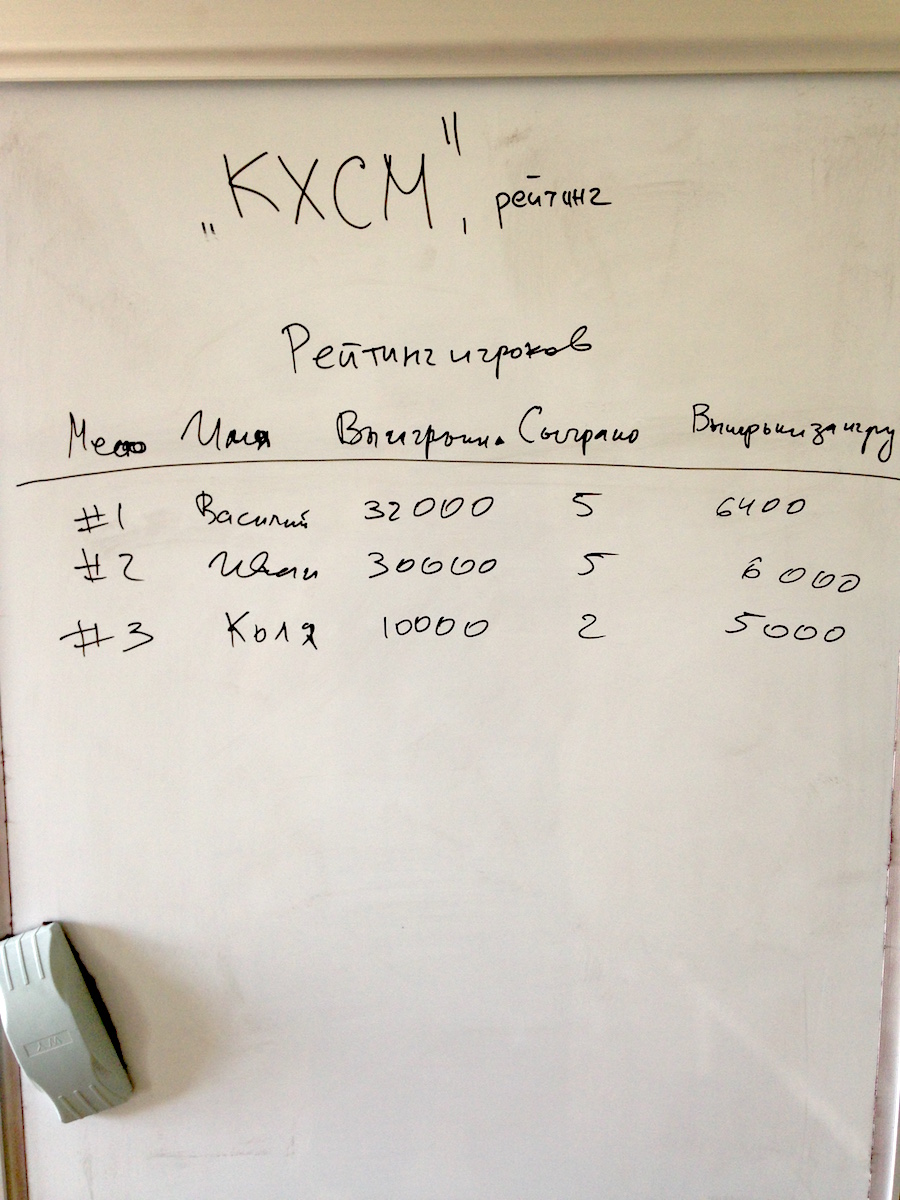 „КХСМ", рейтинг
Рейтинг игроков
Место Имя Выигрыши Сыграно Выигрыш за игру
#1 Василий 32000 5 6400
#2 Иван 30000 5 6000
#3 Коля 10000 2 5000